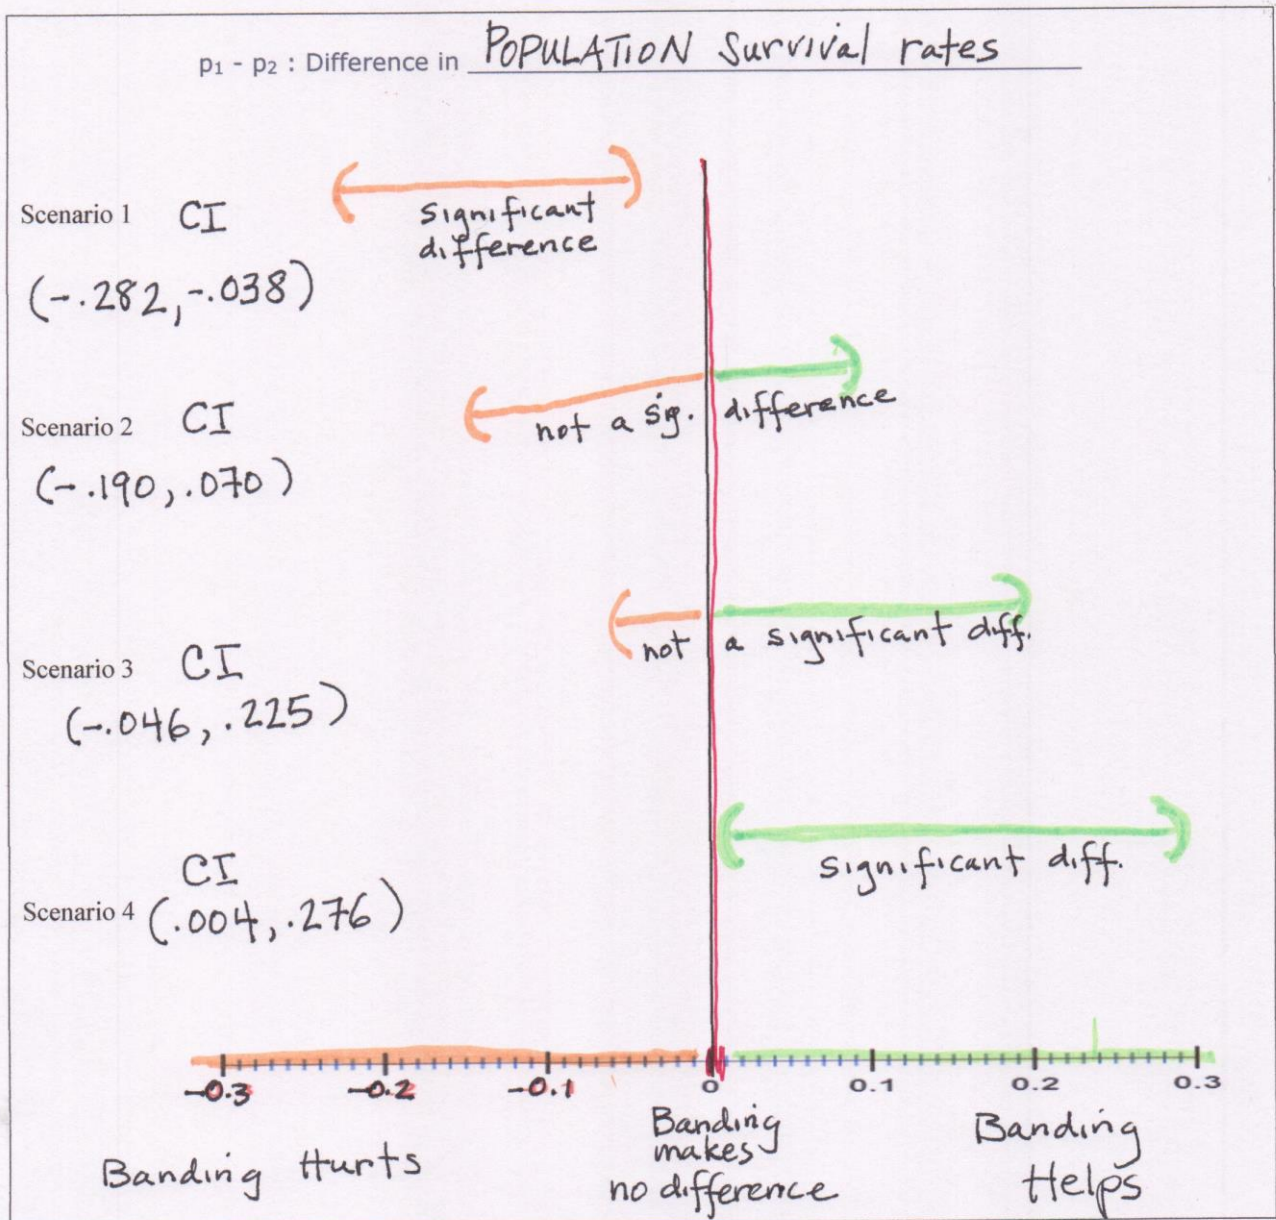 p₁ - p₂ : Difference in POPULATION Survival rates
Scenario 1 CI
(-.282, -.038)
significant
difference
Scenario 2 CI
(-.190, .070)
not a sig. difference
Scenario 3 CI
(-.046, .225)
not a significant diff.
CI
Scenario 4 (.004, .276)
significant diff.
-0.3 -0.2 -0.1 0 0.1 0.2 0.3
Banding Hurts
Banding
makes
no difference
Banding
Helps